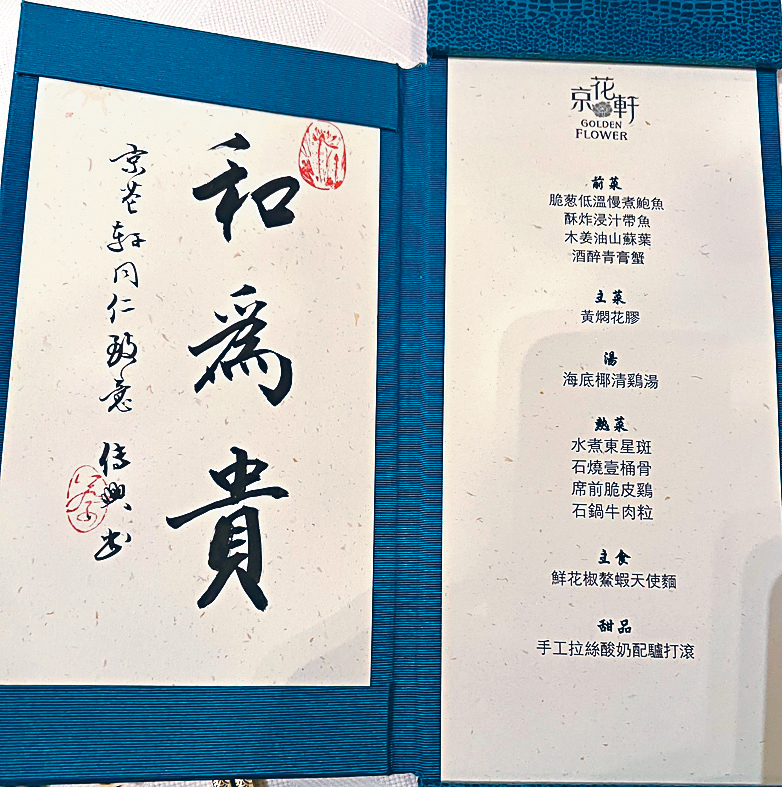 和為貴
京花軒同仁致意
傳興書
京花軒
GOLDEN
FLOWER
前菜
脆葱低溫慢煮鮑魚
酥炸浸汁帶魚
木姜油山蘇葉
酒醉青膏蟹
主菜
黃燜花膠
湯
海底椰清鷄湯
熱菜
水煮東星斑
石燒壹桶骨
席前脆皮鷄
石鍋牛肉粒
主食
鮮花椒鰲蝦天使麵
甜品
手工拉絲酸奶配驢打滾